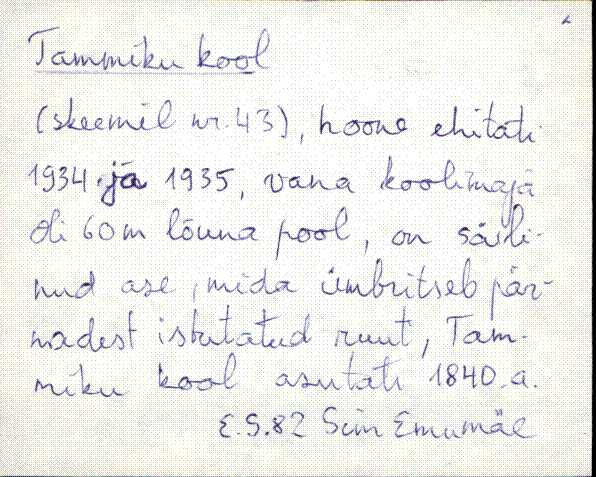 Tammiku kool
(skeemil nr. 43), hoone ehitati
1934. ja 1935, vana koolimaja
oli 60 m lõuna pool, on säili-
nud ase, mida ümbritseb pär-
nadest istutatud ruut, Tam-
miku kool asutati 1840. a.
E.S.82 Siim Emumäe